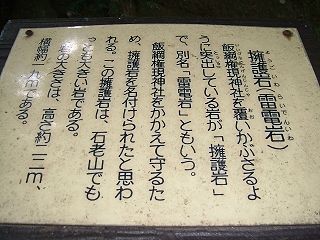 擁護岩(雷電岩)
ようごいわ らいでんいわ
飯綱権現神社を覆いかぶさるよ
うに突出している岩が「擁護岩」
で、別名「雷電岩」ともいう。
飯綱権現神社をかかえて守るた
め、擁護岩を名付けられたと思わ
れる。この擁護岩は、石老山でも
っとも大きい岩である。
岩の大きさは、高さ約二二m、
横幅約一九mである。